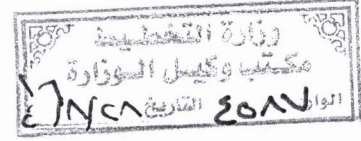 وزارة التخطيط
مكتب وكيل الوزارة
الوارد ٤٥٨٧ التاريخ